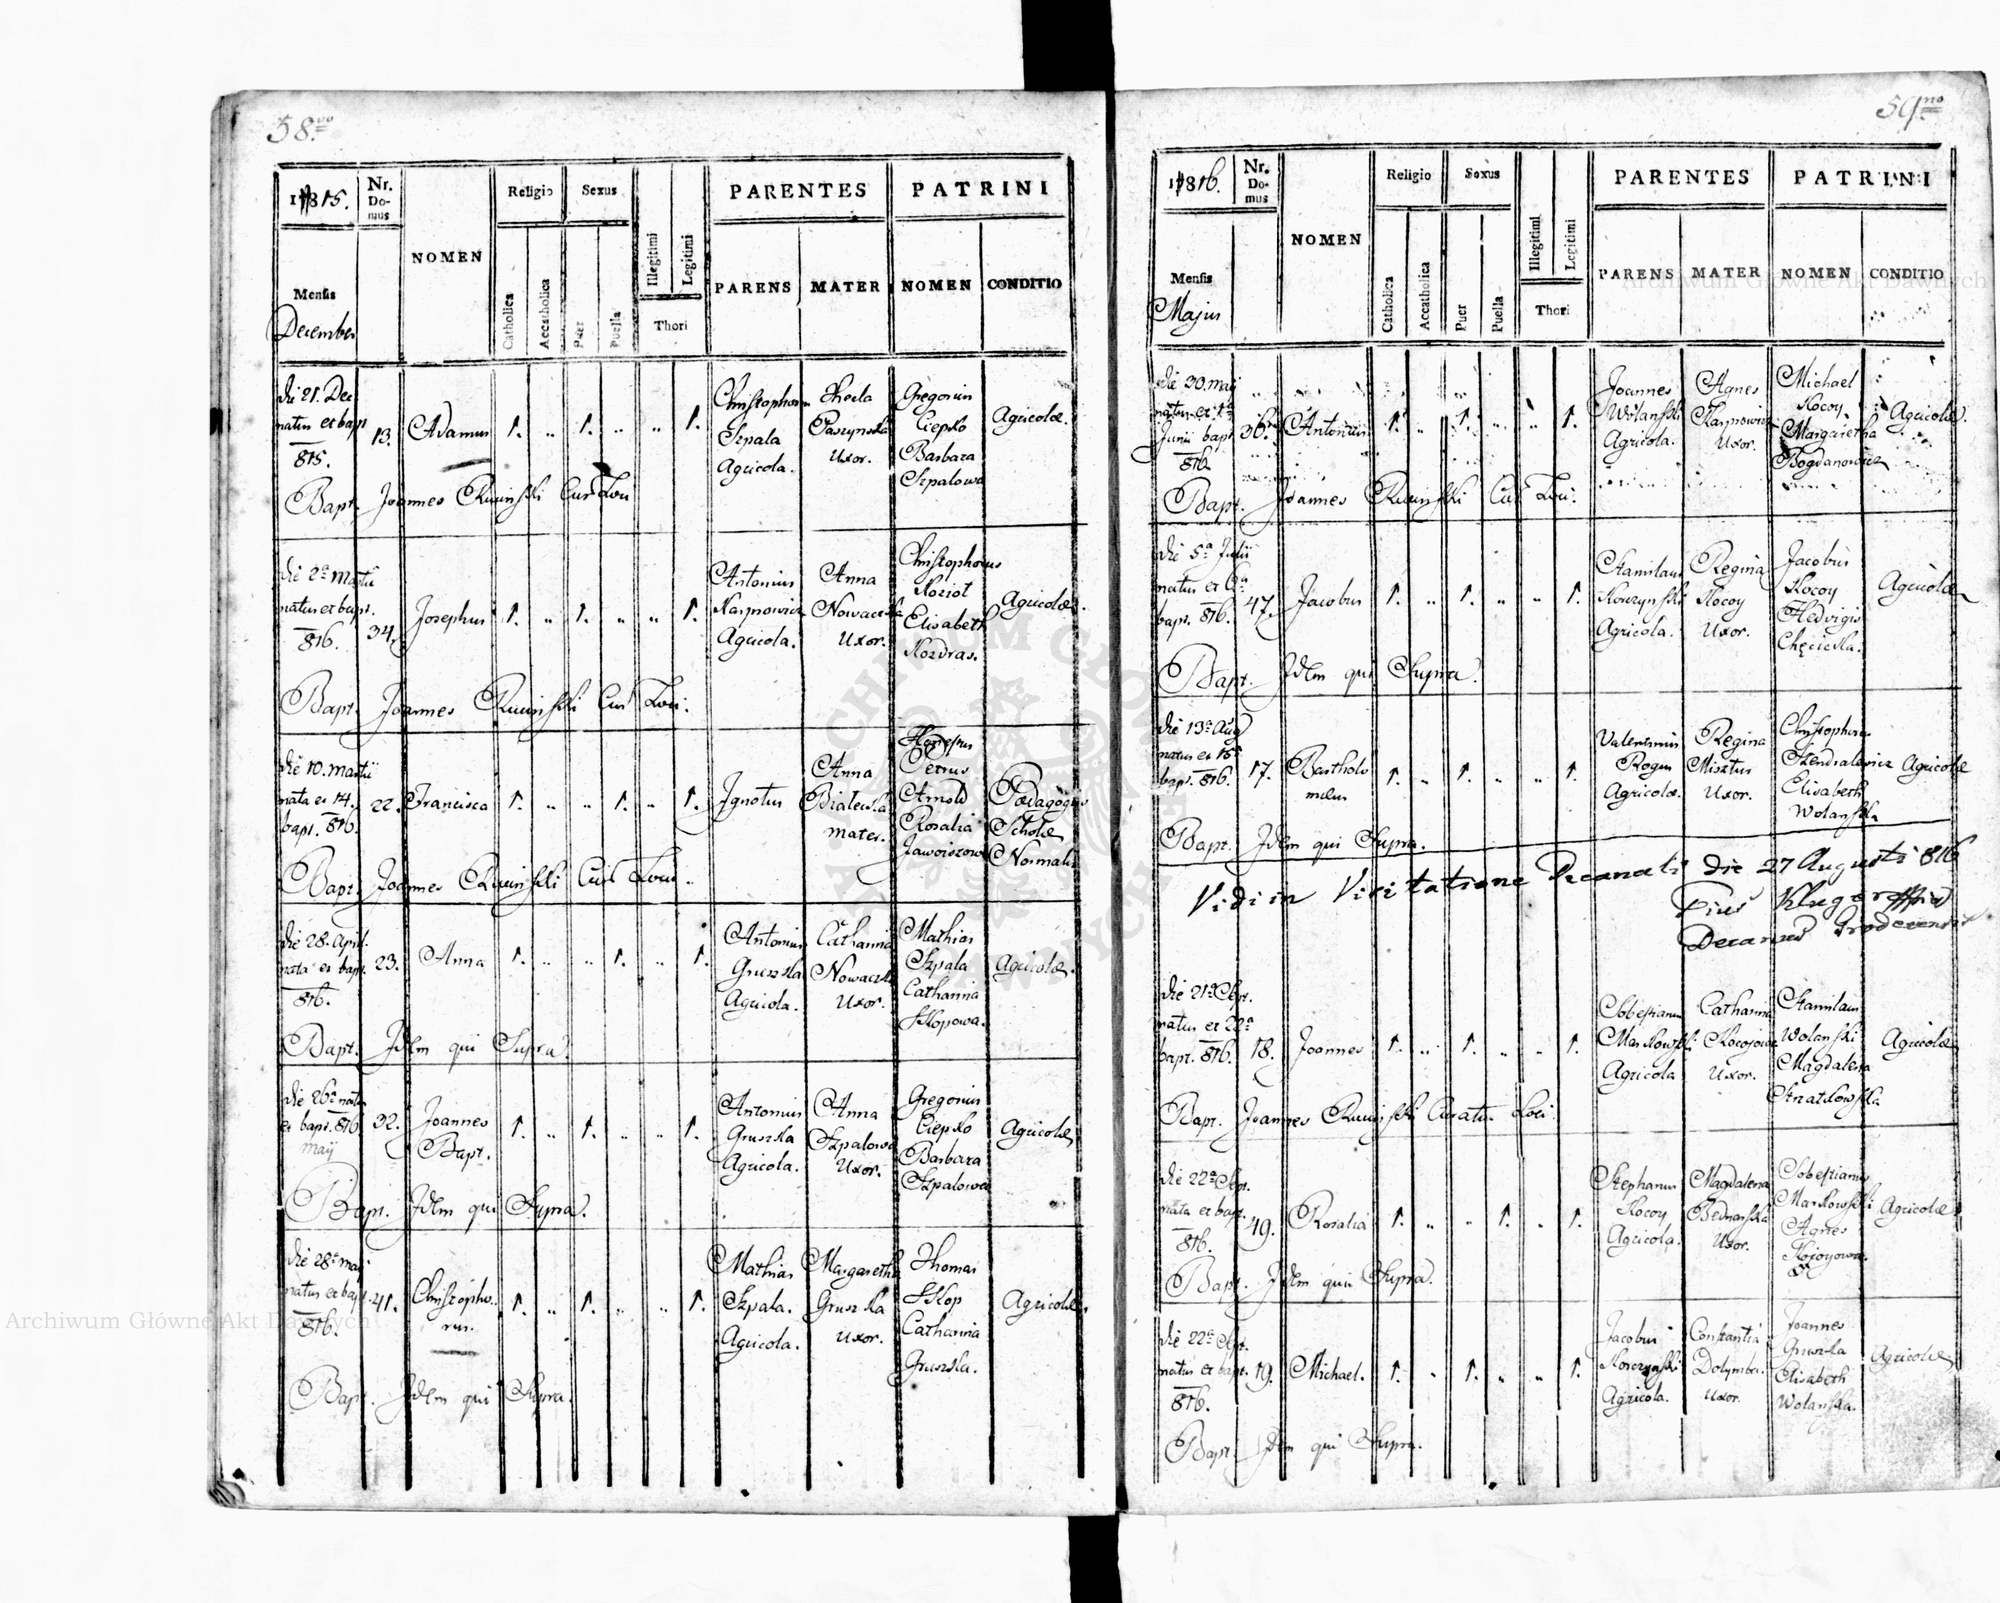 58.vo
1815.
Nr. Do-mus
NOMEN
Religio
Sexus
PARENTES
PATRINI
Mensis
December
Catholica
Accatholica
Puer
Puella
Illegitimi
Legitimi
Thori
PARENS
MATER
NOMEN
CONDITIO
die 21. Dec
natus et bapt
815.
13.
Adamus
1. „ 1. „ „ 1.
Christophorus
Szpala
Agricola.
Thecla
Paszynska
Uxor.
Gregorius
Ciepło
Barbara
Szpalowa
Agricolæ.
Bapt. Joannes Rucinski Cur Loci
die 2a Martii
natus et bapt.
816.
34.
Josephus
1. „ 1. „ „ 1.
Antonius
Karpnowicz
Agricola.
Anna
Nowacka
Uxor.
Christophorus
Koziot
Elisabeth
Kozdras.
Agricolæ.
Bapt. Joannes Rucinski Cur Loci.
die 10. Martii
nata et 14.
bapt. 816.
22.
Francisca
1. „ „ 1. „ 1.
Ignotus
Anna
Bialewska
mater.
Honestus
Petrus
Arnold
Rosalia
Jaworszowa
Pædagogus
Scholæ
Normalis
Bapt. Joannes Rucinski Cur Loci.
die 28. April.
nata et bapt.
816.
23.
Anna
1. „ „ 1. „ 1.
Antonius
Gruszka
Agricola.
Catharina
Nowacka
Uxor.
Mathias
Szpala
Catharina
Skopowa.
Agricolæ.
Bapt. Idem qui Supra.
die 26a natus
et bapt. 816
maij
32.
Joannes
Bapt.
1. „ 1. „ „ 1.
Antonius
Gruszka
Agricola.
Anna
Szpalowa
Uxor.
Gregorius
Ciepło
Barbara
Szpalowa
Agricolæ
Bapt. Idem qui Supra.
die 28a maij
natus et bapt.
816.
41.
Christopho-
rus.
1. „ 1. „ „ 1.
Mathias
Szpala.
Agricola.
Margaretha
Gruszka
Uxor.
Thomas
Skop
Catharina
Gruszka.
Agricolæ.
Bapt. Idem qui Supra.
59.no
1816.
Nr. Do-mus
NOMEN
Religio
Sexus
PARENTES
PATRINI
Mensis
Majus
Catholica
Accatholica
Puer
Puella
Illegitimi
Legitimi
Thori
PARENS
MATER
NOMEN
CONDITIO
die 30. maij
natus et 1a
Junii bapt.
816
36.
Antonius
1. „ 1. „ „ 1.
Joannes
Wolanski
Agricola.
Agnes
Karpnowicz
Uxor.
Michael
Kocoy
Margaretha
Bogdanowicz
Agricolæ.
Bapt. Joannes Rucinski Cur Loci.
die 5a Julii
natus et 6a
bapt. 816.
47.
Jacobus
1. „ 1. „ „ 1.
Stanislaus
Korzynski
Agricola.
Regina
Kocoy
Uxor.
Jacobus
Kocoy
Hedvigis
Chęcieska.
Agricolæ
Bapt. Idem qui Supra.
die 13a Aug
natus et 15a
bapt. 816.
17.
Bartholo
mæus
1. „ 1. „ „ 1.
Valentinus
Rogus
Agricola.
Regina
Misztus
Uxor.
Christophorus
Szendralewicz
Elisabeth
Wolanska
Agricolæ
Bapt. Idem qui Supra.
Vidi in Visitatione Decanati die 27 Augusti 816
Pius Kluger
Decanus Grodecensis
die 21a Sept.
natus et 22a
bapt. 816.
18.
Joannes
1. „ 1. „ „ 1.
Sobestianus
Markowski
Agricola
Catharina
Kocojowa
Uxor.
Stanislaus
Wolanski
Magdalena
Sznatkowska
Agricolæ
Bapt. Joannes Rucinski Curatus Loci
die 22a Sept.
nata et bapt.
816.
49.
Rosalia
1. „ „ 1. „ 1.
Stephanus
Kocoy
Agricola.
Magdalena
Bednarska
Uxor.
Sobestianus
Markowski
Agnes
Kojoyowa.
Agricolæ
Bapt. Idem qui Supra.
die 22a Sept.
natus et bapt.
816.
19.
Michael.
1. „ 1. „ „ 1.
Jacobus
Korzynski
Agricola.
Constantia
Dolymba.
Uxor.
Joannes
Gruszka
Elisabeth
Wolanska.
Agricolæ
Bapt. Idem qui Supra.
Archiwum Główne Akt Dawnych
Archiwum Główne Akt Dawnych